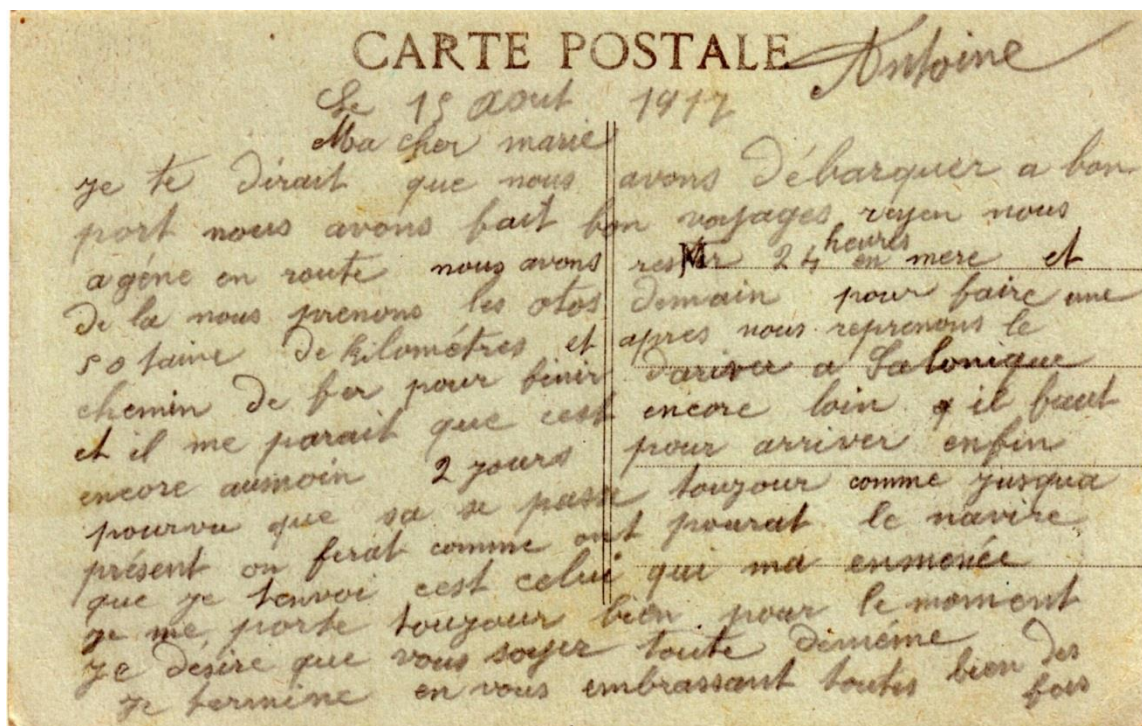 CARTE POSTALE Antoine
Le 15 Aout 1917
Ma cher marie
je te dirait que nous avons débarquer a bon
port nous avons fait bon voyages rejen nous
a géne en route nous avons rester 24 heures en mere et
de la nous prenons les otos demain pour faire une
50 taine de kilométres et apres nous reprenons le
chemin de fer pour finir dariver a Salonique
et il me parait que cest encore loin q il faut
encore aumoin 2 jours pour arriver enfin
pourvu que sa se passe toujour comme jusqua
présent on ferat comme ont pourat le navire
que je tenvoi cest celui qui ma enmenée
je me porte toujour bien pour le moment
je désire que vous soyer toute deméme
Je termine en vous embrassant toutes bien des
fois